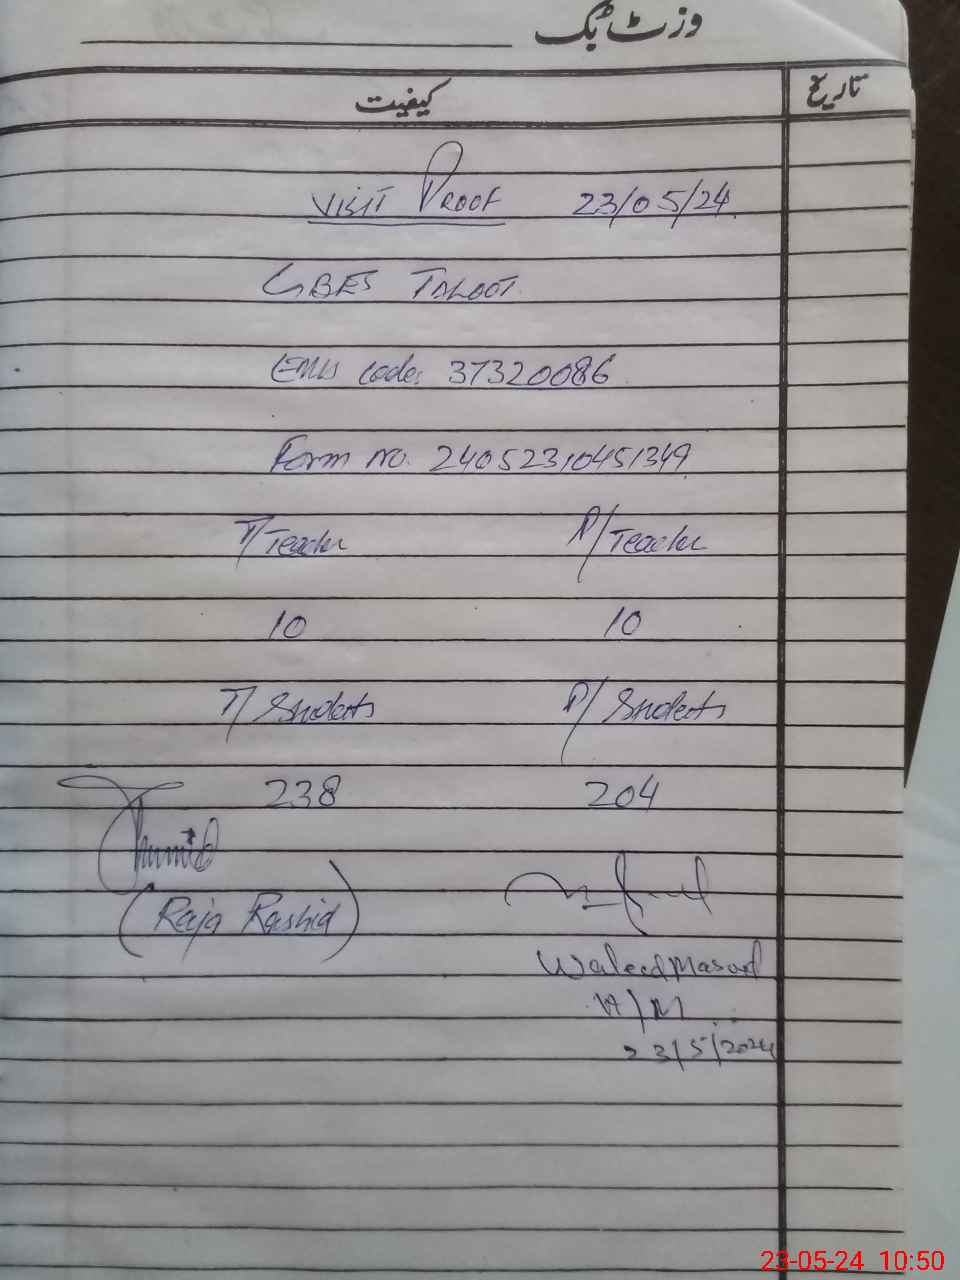 وزٹ بک
کیفیت تاریخ
VISIT PROOF 23/05/24
GBES TALOOT
EMIS code: 37320086
Form no. 24052310451349
T/Teacher P/Teacher
10 10
T/Students P/Students
238 204
(Raja Rashid)
Waleed Masood
H/M
23/5/2024
23-05-24 10:50